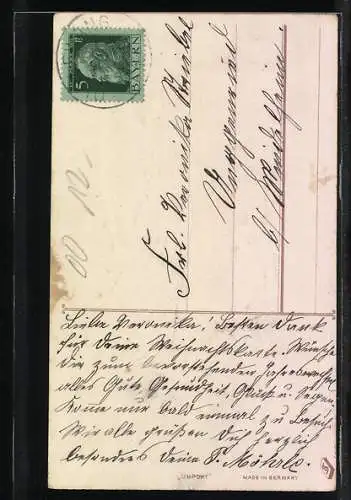 5
BAYERN
Frl. Veronika
Liebe Veronika! Besten Dank
für Deine Weihnachtskarte. Wünsche
Dir zum bevorstehenden Jahreswechsel
alles Gute Gesundheit, Glück u. Segen
Komme nur bald einmal zu Besuch.
Wir alle grüßen Dich herzlich
besonders Deine
IMPORT
MADE IN GERMANY